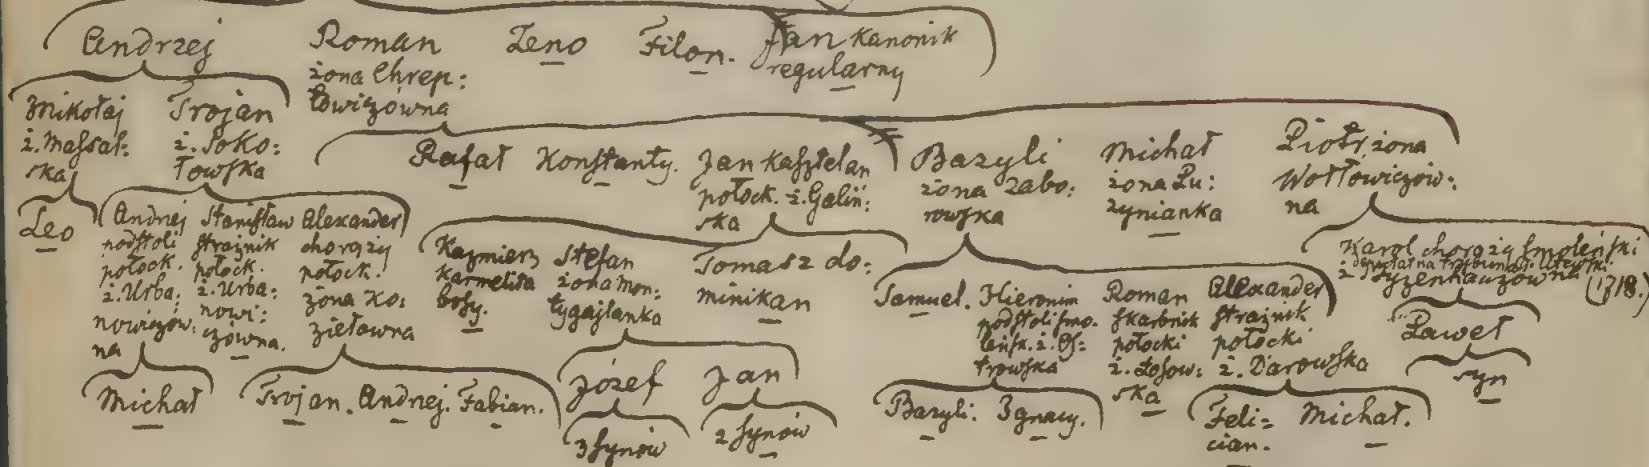 Andrzej
Roman
żona Chrep:
towiczówna
Zeno
Filon.
Jan Kanonik
regularny
Mikołaj
ż. Massal:
ska
Trojan
ż. Soko:
łowska
Rafał
Konstanty.
Jan Kasztelan
połock. ż. Galiń:
ska
Bazyli
żona Zabo:
rowska
Michał
żona Łu:
zynianka
Piotr żona
Wołłowiczów:
na
Leo
Andrzej
podstoli
połock.
ż. Urba:
nowiczów:
na
Stanisław
strażnik
połock.
ż. Urba:
nowi:
czówna.
Alexander
chorąży
połock.
żona Ko:
ziełówna
Kazmierz
karmelita
bosy.
Stefan
żona Mon:
tygajłanka
Tomasz do:
minikan
Samuel.
Hieronim
podstoli smo:
leńsk. ż. Os:
trowska
Roman
skarbnik
połocki
ż. Łosow:
ska
Alexander
strażnik
połocki
ż. Darowska
Karol chorąży smoleński
deputat na Trybunał
(1718.)
Paweł
syn
Michał
Trojan. Andrzej. Fabian.
Józef
Jan
3 synów
2 synów
Bazyli. Ignacy.
Feli=
cian.
Michał.